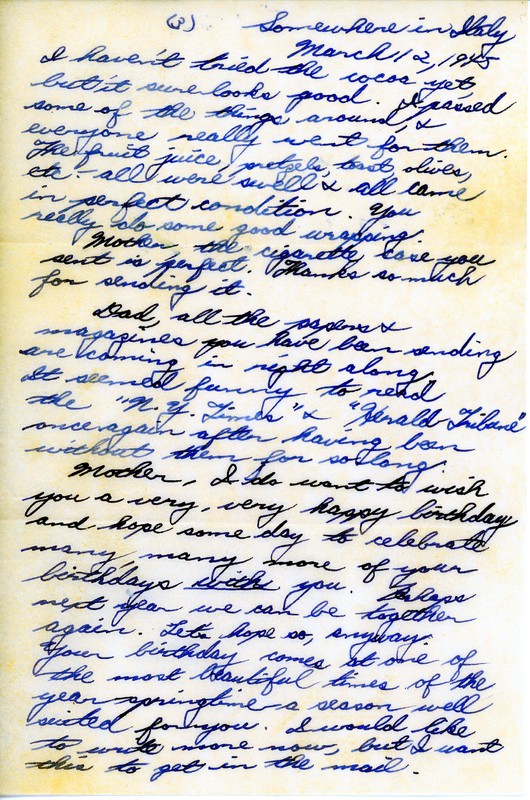 (3) Somewhere in Italy
March 12, 1945
I haven't tried the cocoa yet
but it sure looks good. I passed
some of the things around, &
everyone really went for them.
The fruit juice, pretzels, toast, olives,
etc - all were swell & all came
in perfect condition. You
really do some good wrapping.
Mother the cigarette case you
sent is perfect. Thanks so much
for sending it.
Dad, all the papers &
magazines you have been sending
are coming in right along.
It seemed funny to read
the "N.Y. Times" & "Herald Tribune"
once again after having been
without them for so long.
Mother, I do want to wish
you a very, very happy birthday
and hope some day to celebrate
many, many more of your
birthdays with you. Perhaps
next year we can be together
again. Lets hope so, anyway.
Your birthday comes at one of
the most beautiful times of the
year - springtime - a season well
suited for you. I would like
to write more now, but I want
this to get in the mail.